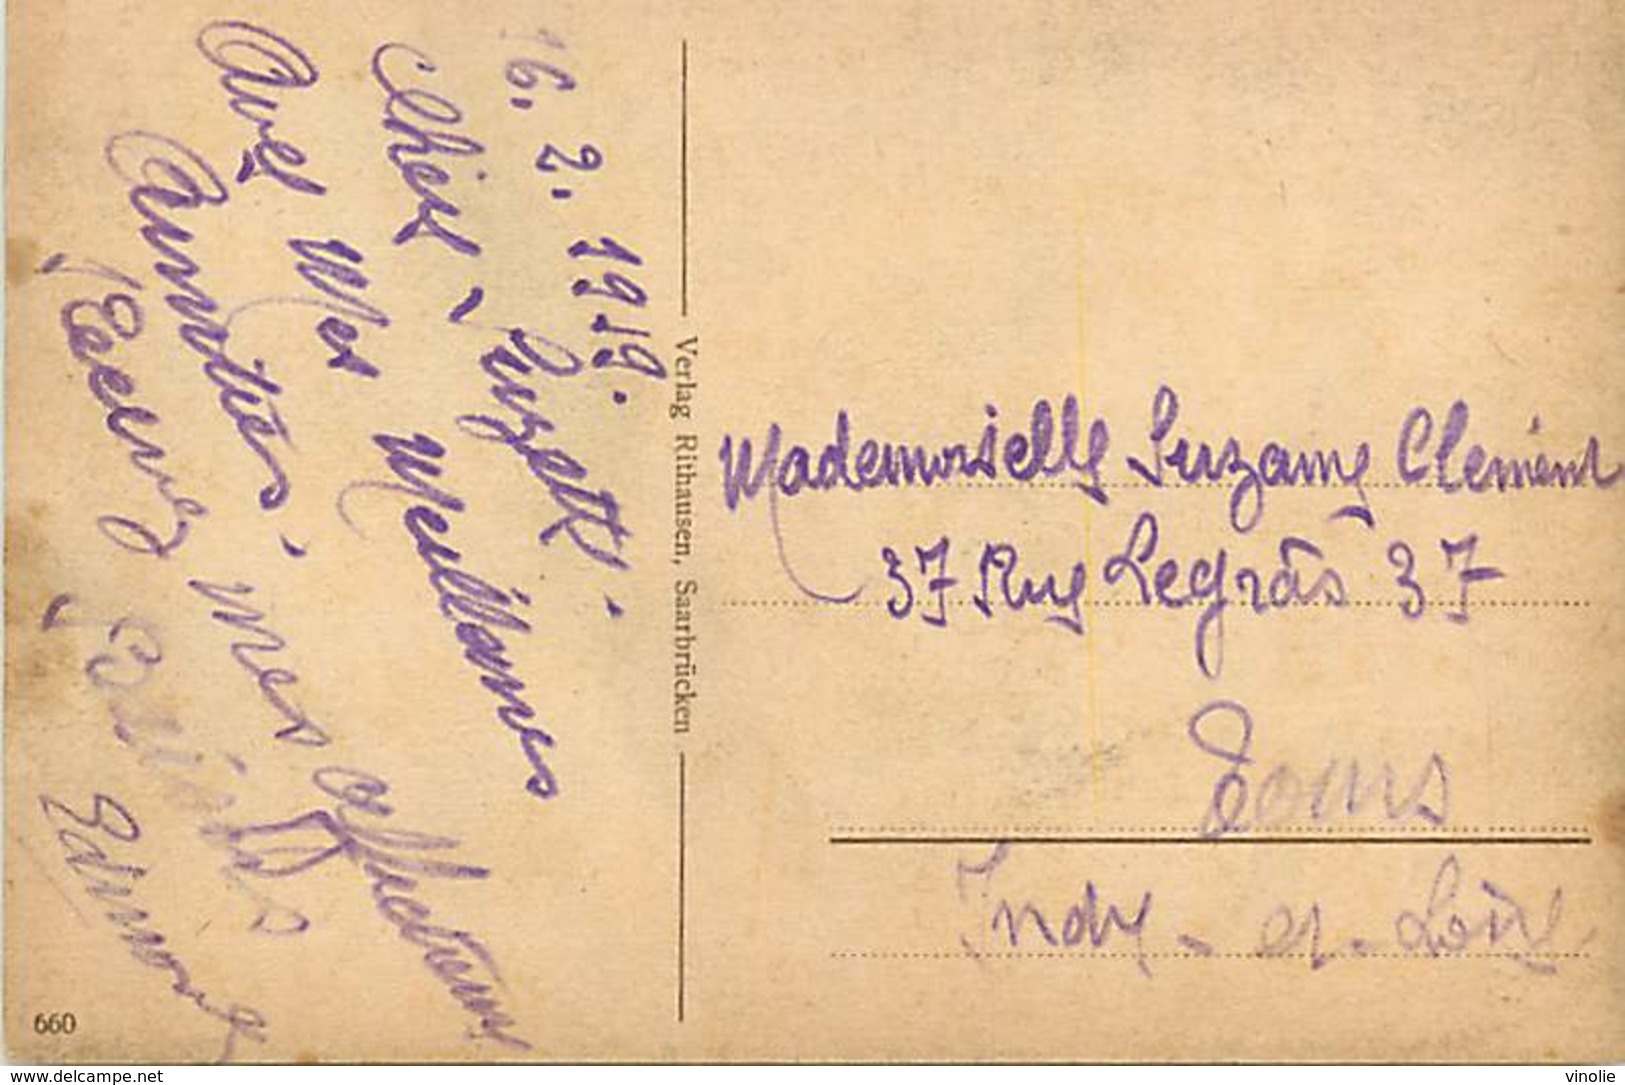 16. 2. 1919.
Chère Suzette.
Avec Mes Meilleures
Amitiés. mes affectueux
Baisers
Edmond
Verlag Rithausen, Saarbrücken
660
Mademoiselle Suzanne Clément
37 Rue Legras 37
Tours
Indre-et-Loire
www.delcampe.net
vinolie